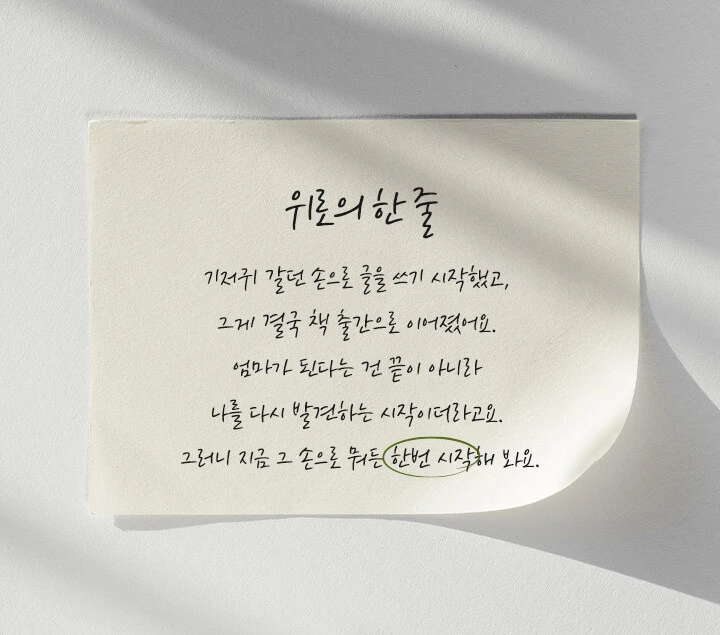 위로의 한 줄
기저귀 갈던 손으로 글을 쓰기 시작했고,
그게 결국 책 출간으로 이어졌어요.
엄마가 된다는 건 끝이 아니라
나를 다시 발견하는 시작이더라고요.
그러니 지금 그 손으로 뭐든 한번 시작해 봐요.